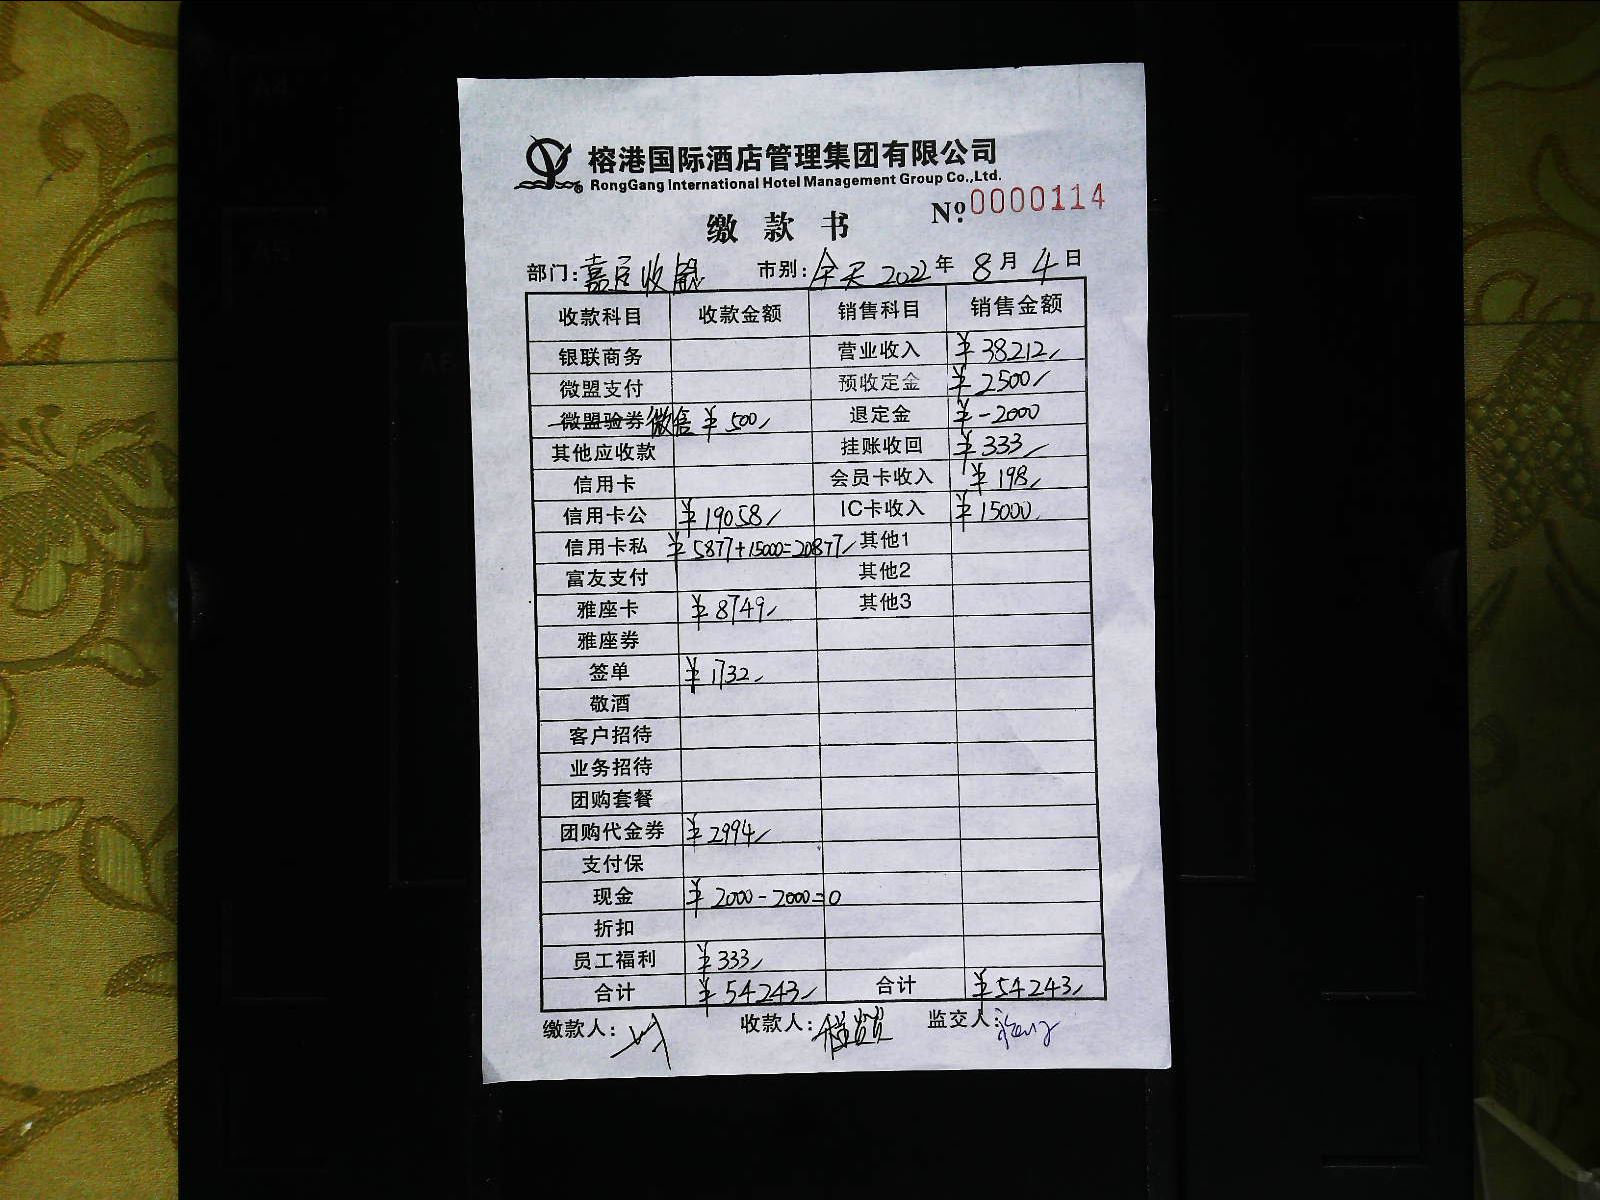 榕港国际酒店管理集团有限公司
RongGang International Hotel Management Group Co.,Ltd.
缴款书 Nº 0000114
部门: 嘉 收 市别: 全天 2022年 8月 4日
收款科目 收款金额 销售科目 销售金额
银联商务 营业收入 ¥38212
微盟支付 预收定金 ¥2500
微盟验券 微售 ¥500 退定金 ¥-2000
其他应收款 挂账收回 ¥333
信用卡 会员卡收入 ¥198
信用卡公 ¥19058 IC卡收入 ¥15000
信用卡私 ¥5877+15000=20877 其他1
富友支付 其他2
雅座卡 ¥8749 其他3
雅座券
签单 ¥1732
敬酒
客户招待
业务招待
团购套餐
团购代金券 ¥2994
支付保
现金 ¥2000-2000=0
折扣
员工福利 ¥333
合计 ¥54243 合计 ¥54243
缴款人: 收款人: 监交人: